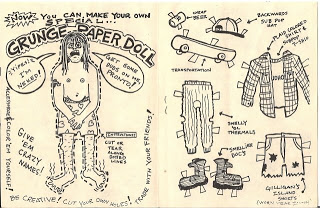 WOW!
YOU CAN MAKE YOUR OWN
SPECIAL...
GRUNGE PAPER DOLL
YIPES!
I'M
NEKKID!
GET SOME
GRUNGE ON ME
PRONTO!
CUT OR
TEAR
ALONG
DOTTED
LINES
GIVE 'EM
CRAZY
NAMES!
BE CREATIVE! CUT YOUR OWN HOLES! TRADE WITH YOUR FRIENDS!
CHEAP
BEER
BACKWARDS
SUB POP
HAT
TRANSPORTATION
PLAID COLORED
SHIRT &
MUDHONEY
T-SHIRT
SMELLY
'OL
THERMALS
SMELLIER
DOC'S
GILLIGAN'S
ISLAND
SHORTS